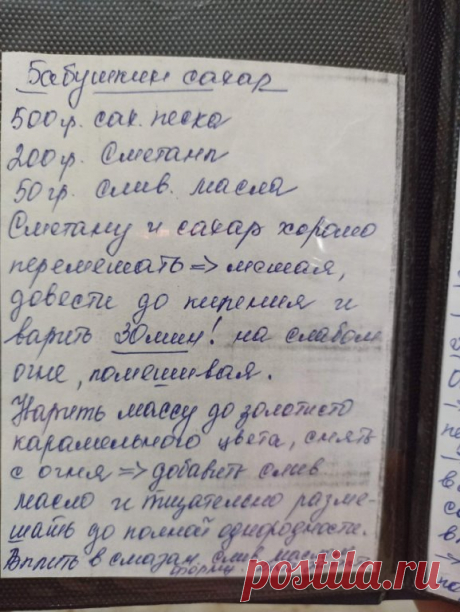 Бабушкин сахар
500гр. сах. песка
200гр. Сметаны
50гр. слив. масла
Сметану и сахар хорошо
перемешать => мешая,
довести до кипения и
варить 30мин! на слабом
огне, помешивая.
Жарить массу до золотисто
карамельного цвета, снять
с огня => добавить слив
масло и тщательно разме-
шать до полной однородности.
в смазан. слив. маслом
форму
postila.ru